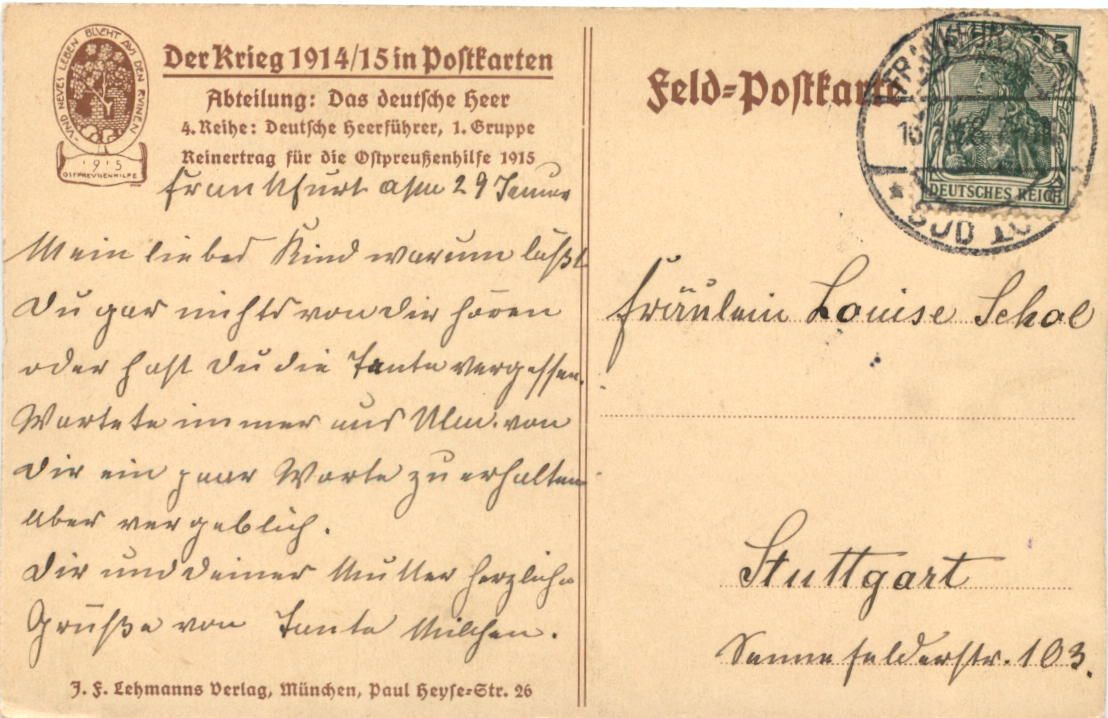 UND NEUES LEBEN BLÜHT AUS DEN RUINEN
1915
OSTPREUSSENHILFE
Der Krieg 1914/15 in Postkarten
Abteilung: Das deutsche Heer
4. Reihe: Deutsche Heerführer, 1. Gruppe
Reinertrag für die Ostpreußenhilfe 1915
Frankfurt a/m 29 Januar
Mein liebes Kind warum läßt
Du gar nichts von dir hören
oder hast Du die Tante vergessen.
Wartete immer aus Ulm von
dir ein paar Worte zu erhalten
aber vergeblich.
Dir und deiner Mutter herzliche
Grüße von Tante Milchen.
J. F. Lehmanns Verlag, München, Paul Heyse-Str. 26
Feld-Postkarte
FRANKFURT
5
DEUTSCHES REICH
Fräulein Louise Schal
Stuttgart
Sennefelderstr. 103.